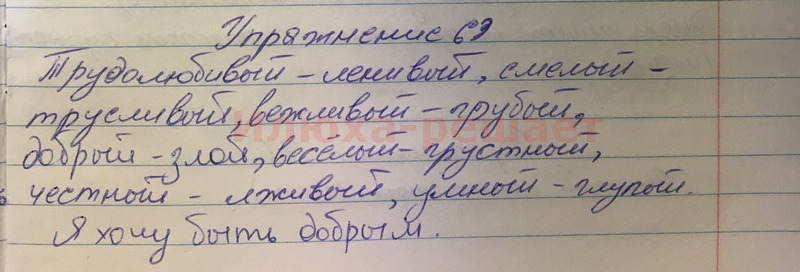 Упражнение 69
Трудолюбивый – ленивый, смелый –
трусливый, вежливый – грубый,
добрый – злой, весёлый – грустный,
честный – лживый, умный – глупый.
Я хочу быть добрым.
Илюха-решает